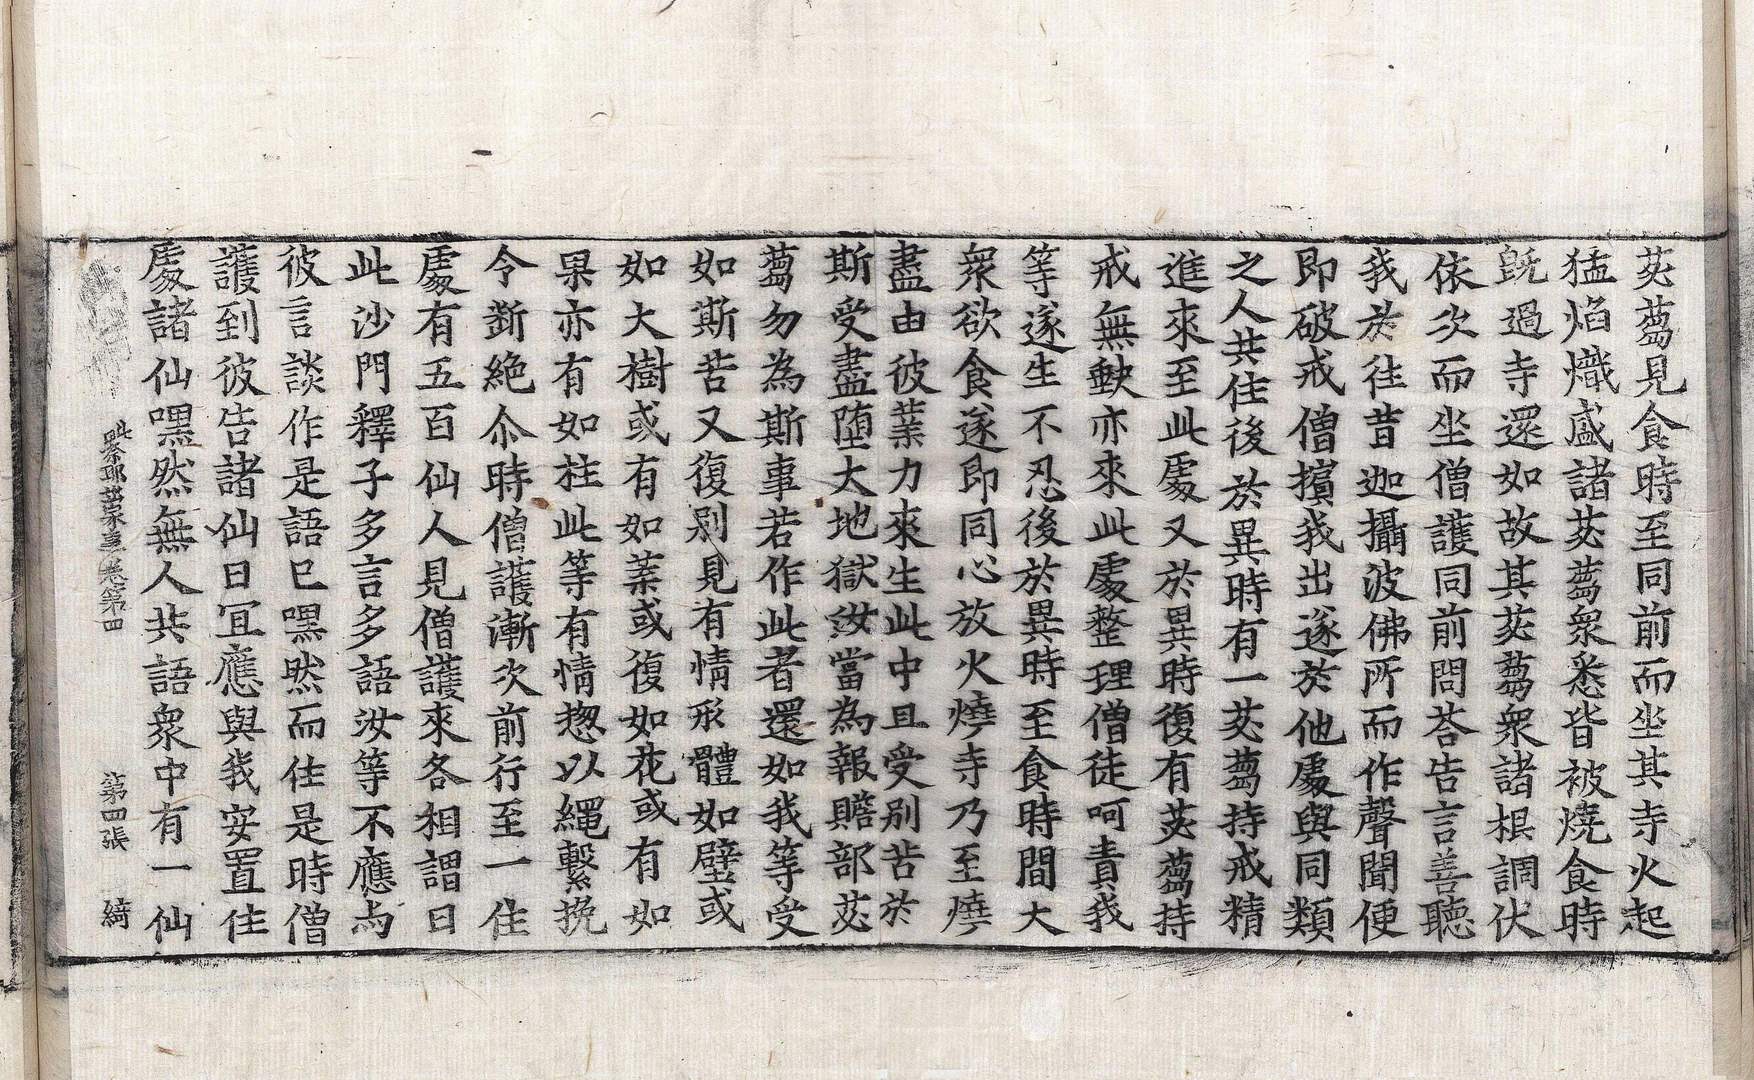 苾蒭見食時至同前而坐其寺火起
猛焰熾盛諸苾蒭衆悉皆被燒食時
旣過寺還如故其苾蒭衆諸根調伏
依次而坐僧護同前問荅告言善聽
我於往昔迦攝波佛所而作聲聞便
即破戒僧擯我出遂於他處與同類
之人共住後於異時有一苾蒭持戒精
進來至此處又於異時復有苾蒭持
戒無歔亦來此處整理僧徒呵責我
等遂生不忍後於異時至食時間大
衆欲食遂即同心放火燒寺乃至燒
盡由彼業力來生此中且受別苦於
斯受盡墮大地獄汝當為報贍部苾
蒭勿為斯事若作此者還如我等受
如斯苦又復別見有情形體如壁或
如大樹或有如葉或復如花或有如
果亦有如柱此等有情惣以繩繫挽
令斷絕尒時僧護漸次前行至一住
處有五百仙人見僧護來各相謂曰
此沙門釋子多言多語汝等不應与
彼言談作是語已嘿然而住是時僧
護到彼告諸仙曰冝應與我安置住
處諸仙嘿然無人共語衆中有一仙
出家事卷第四 第四張 綺